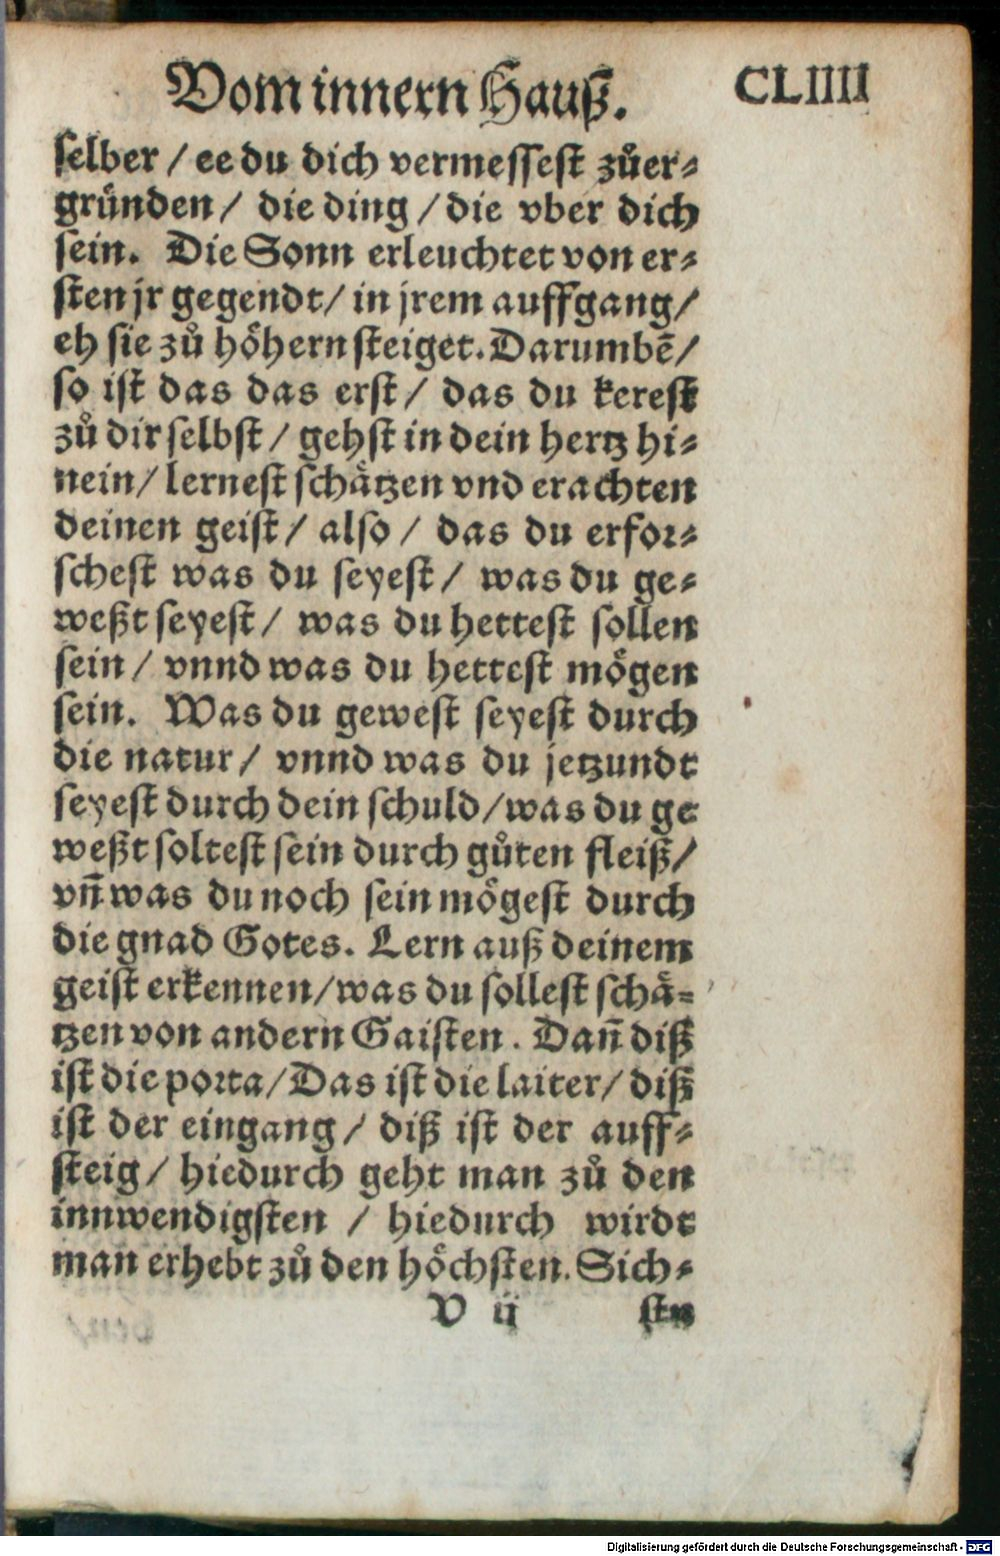 Vom innern Hauß. CLIIII
selber / ee du dich vermessest zůer⸗
gründen / die ding / die vber dich
sein. Die Sonn erleuchtet von er⸗
sten jr gegendt / in jrem auffgang /
eh sie zů höhern steiget. Darumbē /
so ist das das erst / das du kerest
zů dir selbst / gehst in dein hertz hi⸗
nein / lernest schätzen vnd erachten
deinen geist / also / das du erfor⸗
schest was du seyest / was du ge⸗
weßt seyest / was du hettest sollen
sein / vnnd was du hettest mögen
sein. Was du gewest seyest durch
die natur / vnnd was du jetzundt
seyest durch dein schuld / was du ge
weßt soltest sein durch gůten fleiß /
vñ was du noch sein mögest durch
die gnad Gotes. Lern auß deinem
geist erkennen / was du sollest schä⸗
tzen von andern Gaisten. Dañ diß
ist die porta / Das ist die laiter / diß
ist der eingang / diß ist der auff⸗
steig / hiedurch geht man zů den
innwendigsten / hiedurch wirdt
man erhebt zů den höchsten. Sich⸗
V ij stu
Digitalisierung gefördert durch die Deutsche Forschungsgemeinschaft - DFG